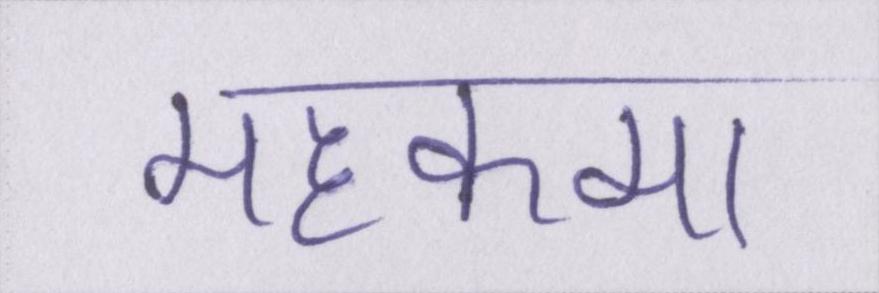 महकमा